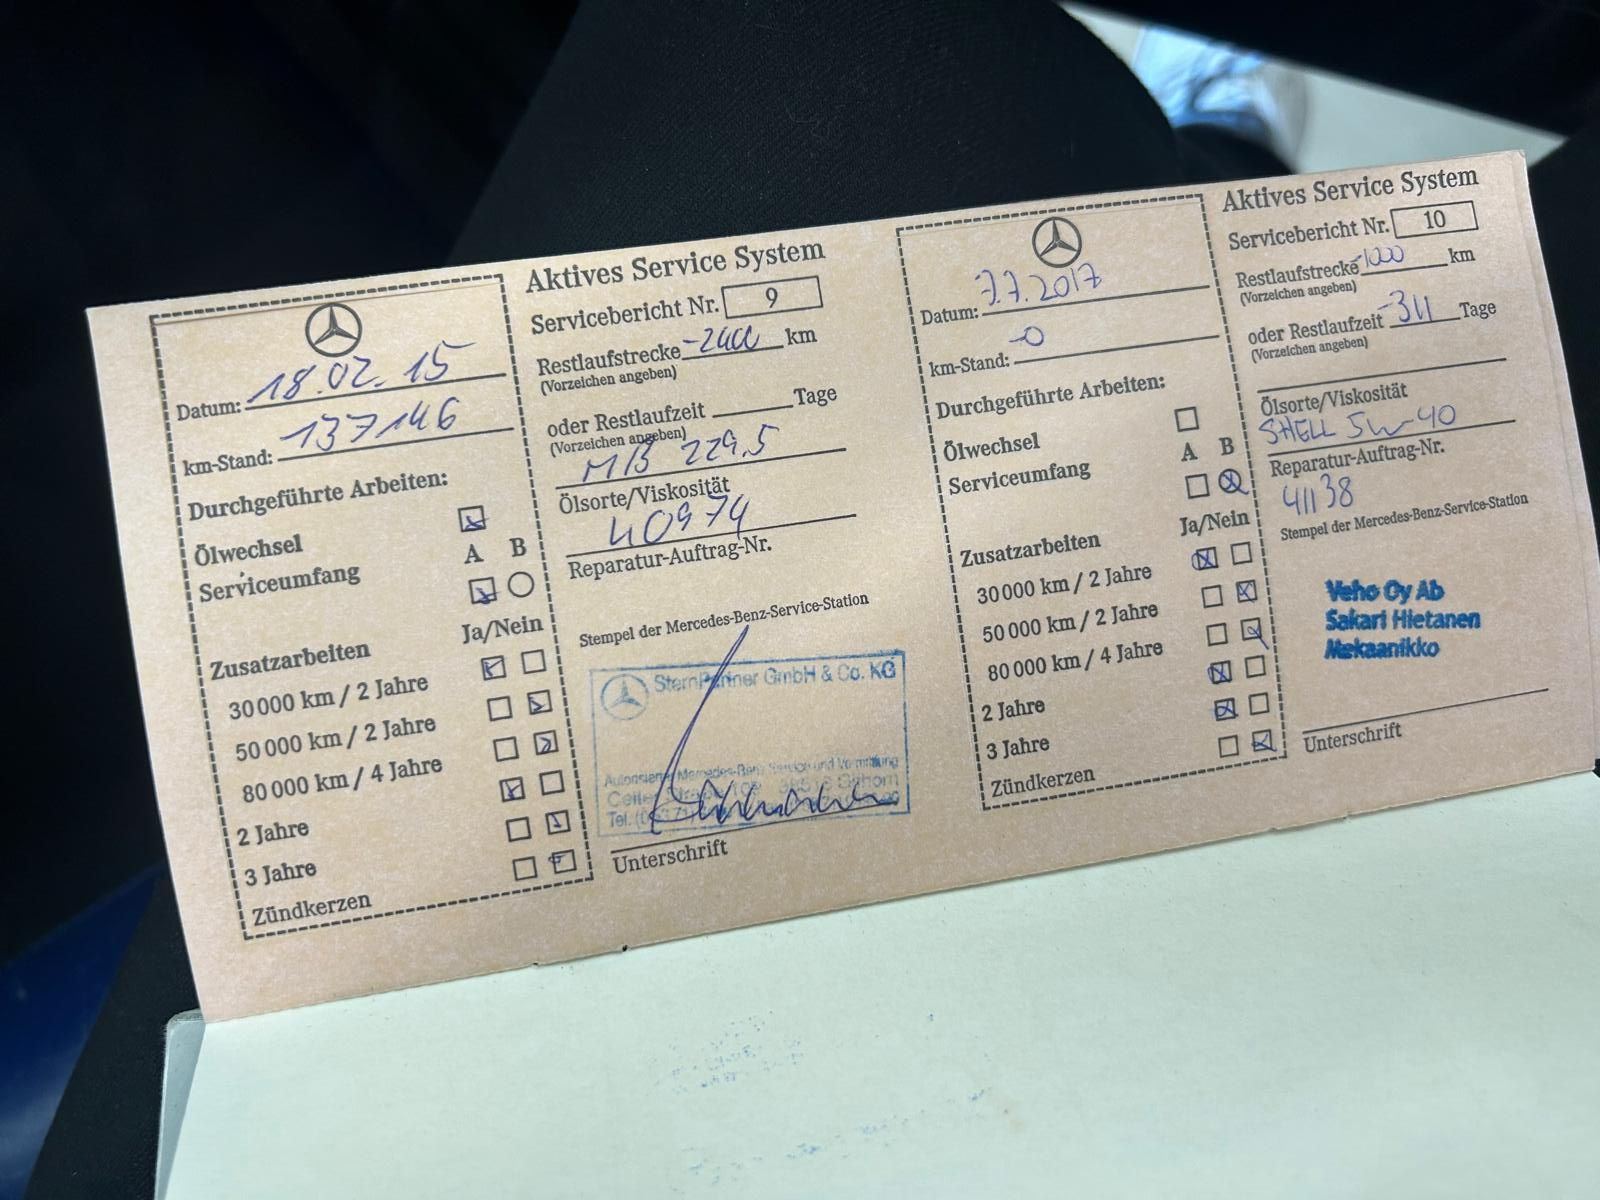 Datum: 18.02.15
km-Stand: 137146
Durchgeführte Arbeiten:
Ölwechsel
A B
Serviceumfang
Ja/Nein
Zusatzarbeiten
30 000 km / 2 Jahre
50 000 km / 2 Jahre
80 000 km / 4 Jahre
2 Jahre
3 Jahre
Zündkerzen
Aktives Service System
Servicebericht Nr. 9
Restlaufstrecke -2400 km
(Vorzeichen angeben)
oder Restlaufzeit Tage
(Vorzeichen angeben)
MB 229.5
Ölsorte/Viskosität
40974
Reparatur-Auftrag-Nr.
Stempel der Mercedes-Benz-Service-Station
SternPartner GmbH & Co. KG
Mercedes-Benz Service und Vermittlung
Tel.
Unterschrift
Datum: 7.7.2017
km-Stand: -0
Durchgeführte Arbeiten:
Ölwechsel
A B
Serviceumfang
Ja/Nein
Zusatzarbeiten
30 000 km / 2 Jahre
50 000 km / 2 Jahre
80 000 km / 4 Jahre
2 Jahre
3 Jahre
Zündkerzen
Aktives Service System
Servicebericht Nr. 10
Restlaufstrecke -1000 km
(Vorzeichen angeben)
oder Restlaufzeit -311 Tage
(Vorzeichen angeben)
Ölsorte/Viskosität
SHELL 5w-40
Reparatur-Auftrag-Nr.
41138
Stempel der Mercedes-Benz-Service-Station
Veho Oy Ab
Sakari Hietanen
Mekaanikko
Unterschrift